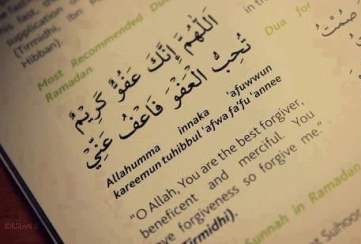 supplication
(Tirmidhi, Ibn
Hibban).
Most Recommended Dua for
Ramadan
اَللّٰهُمَّ اِنَّكَ عَفُوٌّ كَرِيْمٌ
تُحِبُّ الْعَفْوَ فَاعْفُ عَنِّيْ
Allahumma innaka 'afuwwun
kareemun tuhibbul 'afwa fa'fu 'annee
"O Allah, You are the best forgiver,
beneficent and merciful. You
love forgiveness so forgive me."
(Tirmidhi).
Sunnah in Ramadan
Suhoor